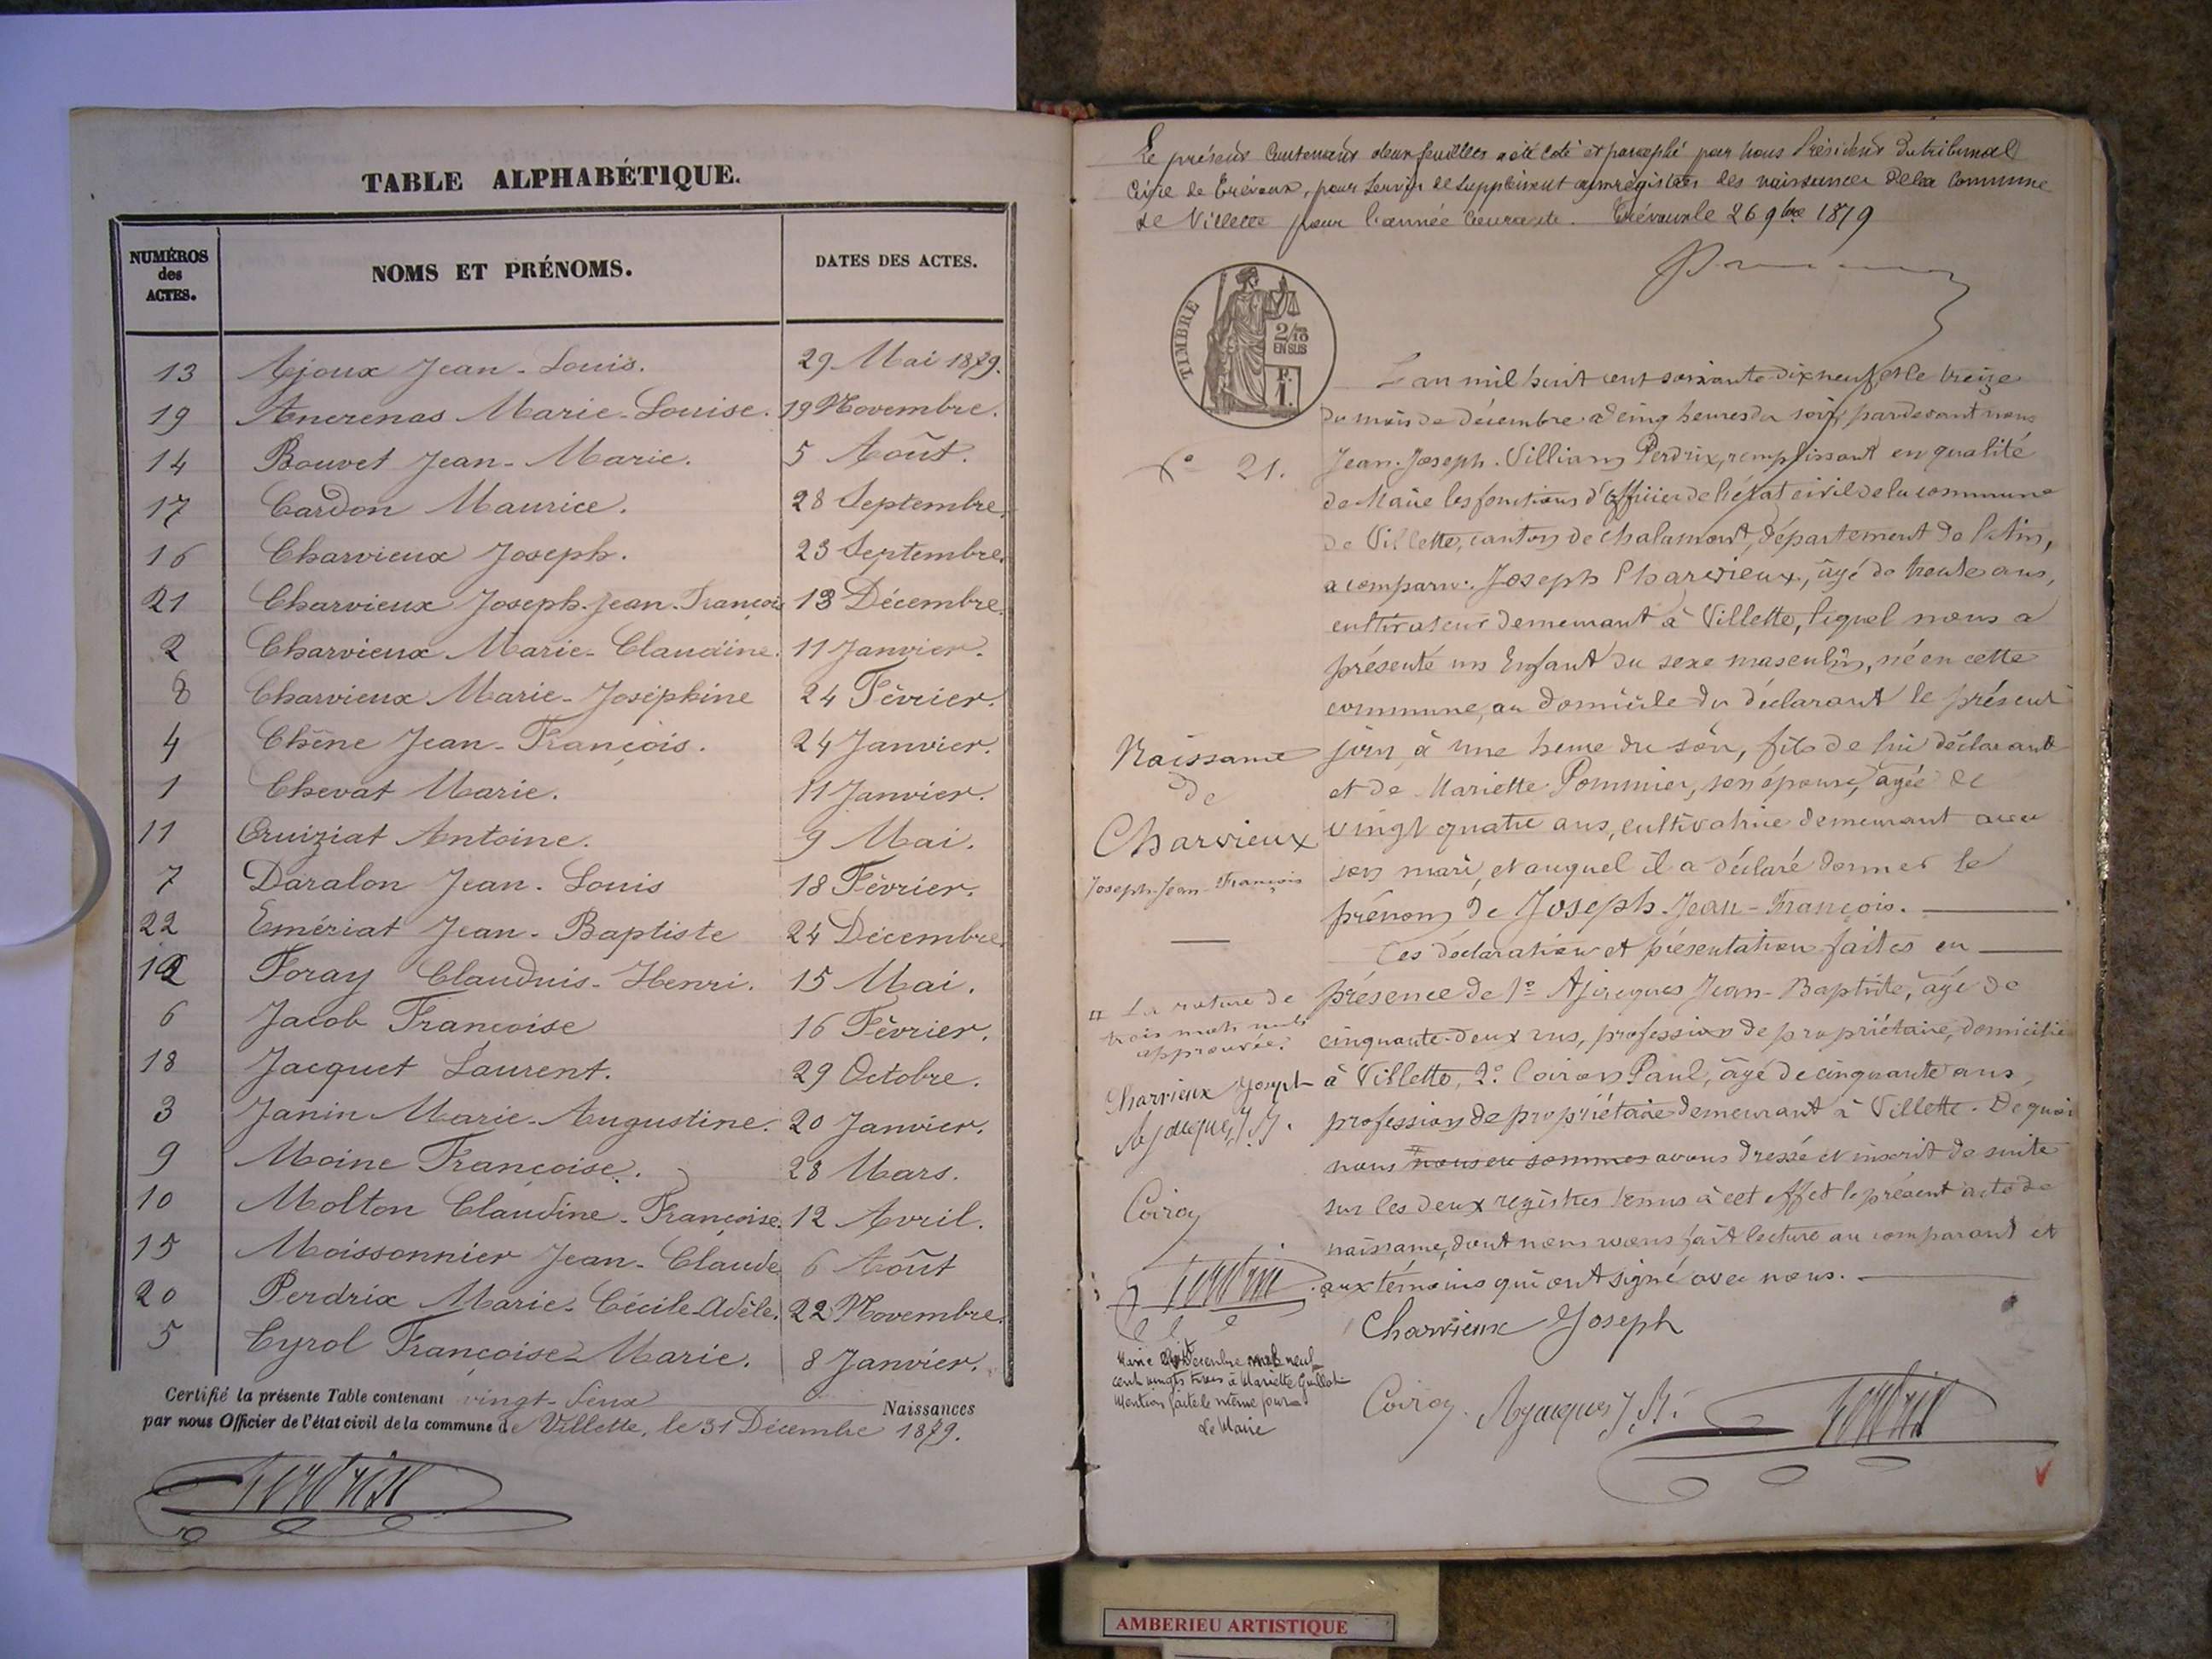 TABLE ALPHABÉTIQUE.
NUMÉROS des ACTES.
NOMS ET PRÉNOMS.
DATES DES ACTES.
13 Ajoux Jean-Louis. 29 Mai 1879.
19 Anerenas Marie-Louise. 19 Novembre.
14 Bouvet Jean-Marie. 5 Août.
17 Cardon Maurice. 28 Septembre.
16 Charvieux Joseph. 23 Septembre.
21 Charvieux Joseph-Jean-François 13 Décembre.
2 Charvieux Marie-Claudine. 11 Janvier.
8 Charvieux Marie-Joséphine 24 Février.
4 Chêne Jean-François. 24 Janvier.
1 Chevat Marie. 11 Janvier.
11 Cruiziat Antoine. 9 Mai.
7 Daralon Jean-Louis 18 Février.
22 Emériat Jean-Baptiste 24 Décembre.
12 Foray Claudius-Henri. 15 Mai.
6 Jacob Françoise 16 Février.
18 Jacquet Laurent. 29 Octobre.
3 Janin Marie-Augustine. 20 Janvier.
9 Moine Françoise. 28 Mars.
10 Molton Claudine-Françoise. 12 Avril.
15 Moissonnier Jean-Claude 6 Août
20 Perdrix Marie-Cécile-Adèle. 22 Novembre.
5 Cyrol Françoise-Marie. 8 Janvier.
Certifié la présente Table contenant vingt-deux Naissances
par nous Officier de l'état civil de la commune de Villette, le 31 Décembre 1879.
Perdrix
Le présent contenant deux feuilles a été coté et paraphé par nous Président du tribunal
Civil de Trévoux, pour servir de supplément aux registres des naissances de la Commune
de Villette pour l'année courante. Trévoux le 26 9bre 1879
TIMBRE
2/10 EN SUS
F. 1.
L'an mil huit cent soixante-dix neuf et le treize
du mois de décembre à cinq heures du soir, pardevant nous
N° 21.
Jean-Joseph-Villiam Perdrix, remplissant en qualité
de Maire les fonctions d'Officier de l'état civil de la commune
de Villette, canton de Chalamont, département de l'Ain,
a comparu: Joseph Charvieux, âgé de trente ans,
cultivateur demeurant à Villette, lequel nous a
présenté un Enfant du sexe masculin, né en cette
commune, au domicile du déclarant le présent
Naissance
de
Charvieux
Joseph-Jean-François
jour, à une heure du soir, fils de lui déclarant
et de Mariette Pommier, son épouse, âgée de
vingt quatre ans, cultivatrice demeurant avec
son mari, et auquel il a déclaré donner le
prénom de Joseph-Jean-François.
Ces déclaration et présentation faites en
présence de 1° Ajacques Jean-Baptiste, âgé de
cinquante-deux ans, profession de propriétaire, domicilié
à Villette, 2° Coiron Paul, âgé de cinquante ans,
profession de propriétaire demeurant à Villette. De quoi
nous nous en sommes avons dressé et inscrit de suite
sur les deux registres tenus à cet effet le présent acte de
naissance, dont nous avons fait lecture au comparant et
aux témoins qui ont signé avec nous.
La rature de
trois mots nuls
approuvée.
Charvieux Joseph
Ajacques J.B.
Coiron
Perdrix
Marié Décembre mil neuf
cent vingt trois à Mariette Guillot
Mention faite le même jour
Le Maire
Charvieux Joseph
Coiron Ajacques J.B. Perdrix
AMBERIEU ARTISTIQUE